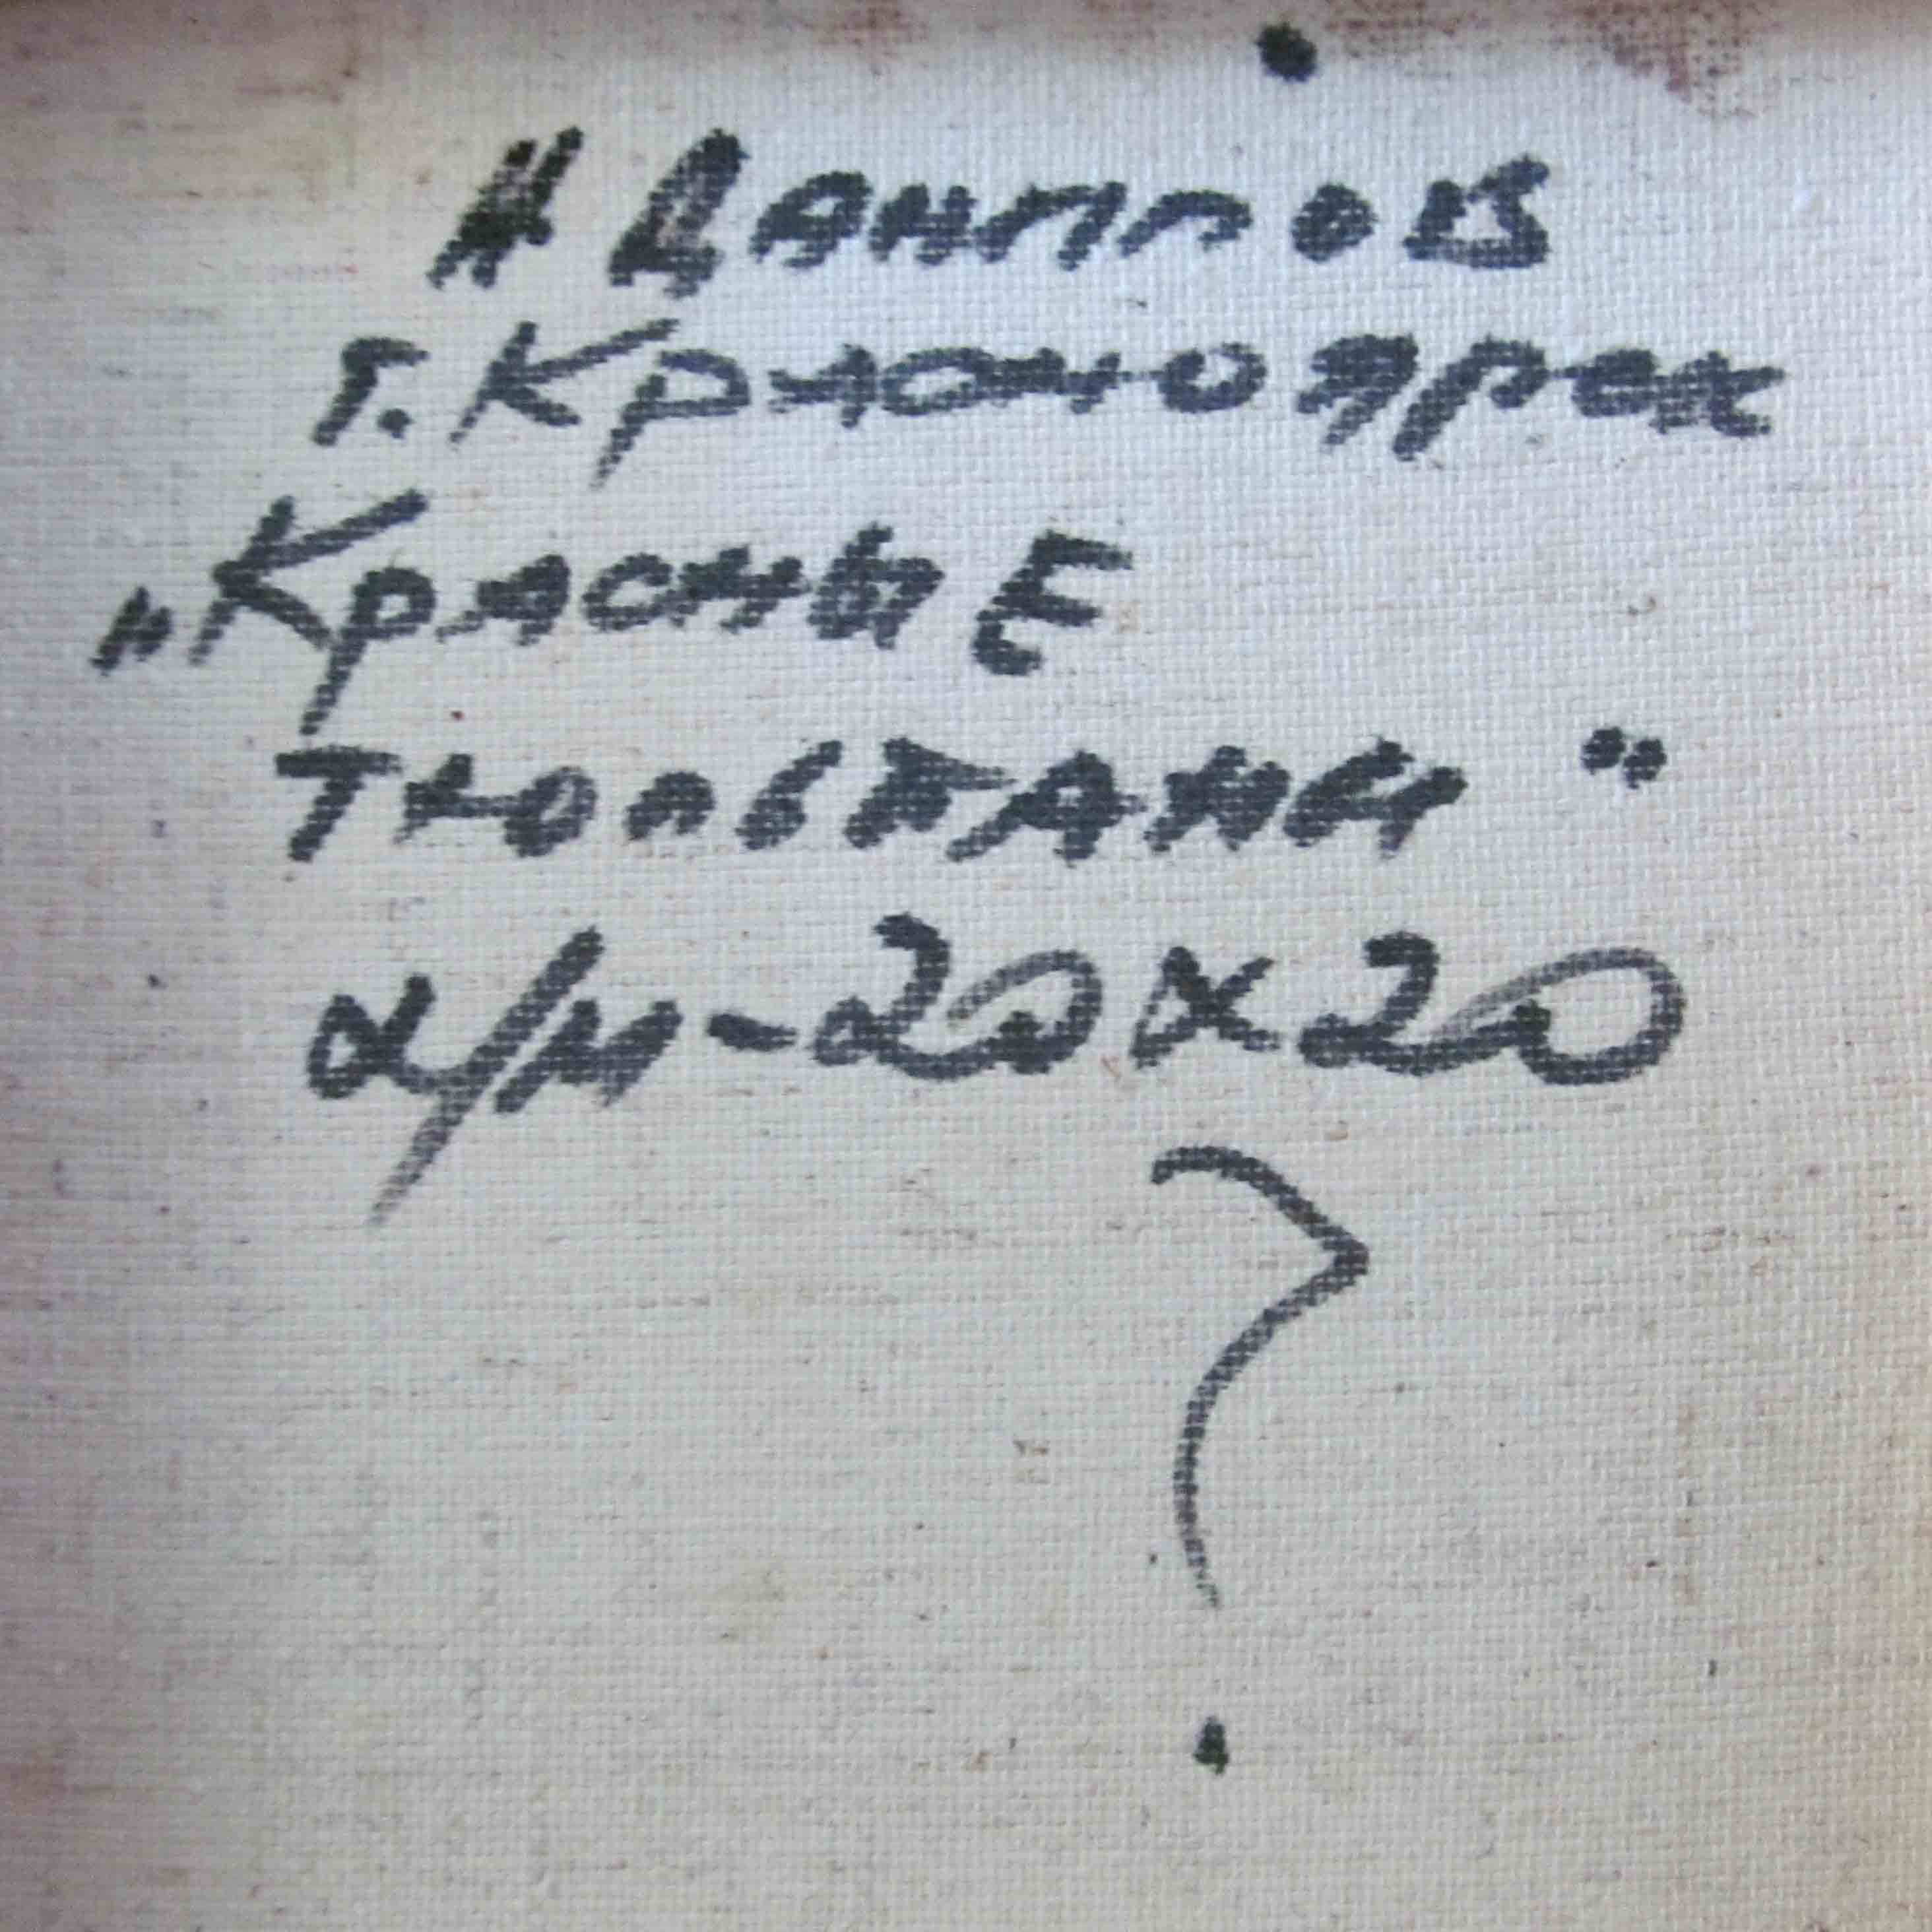 Н Данилов
г. Красноярск
„Красные
тюльпаны“
х/м-20х20